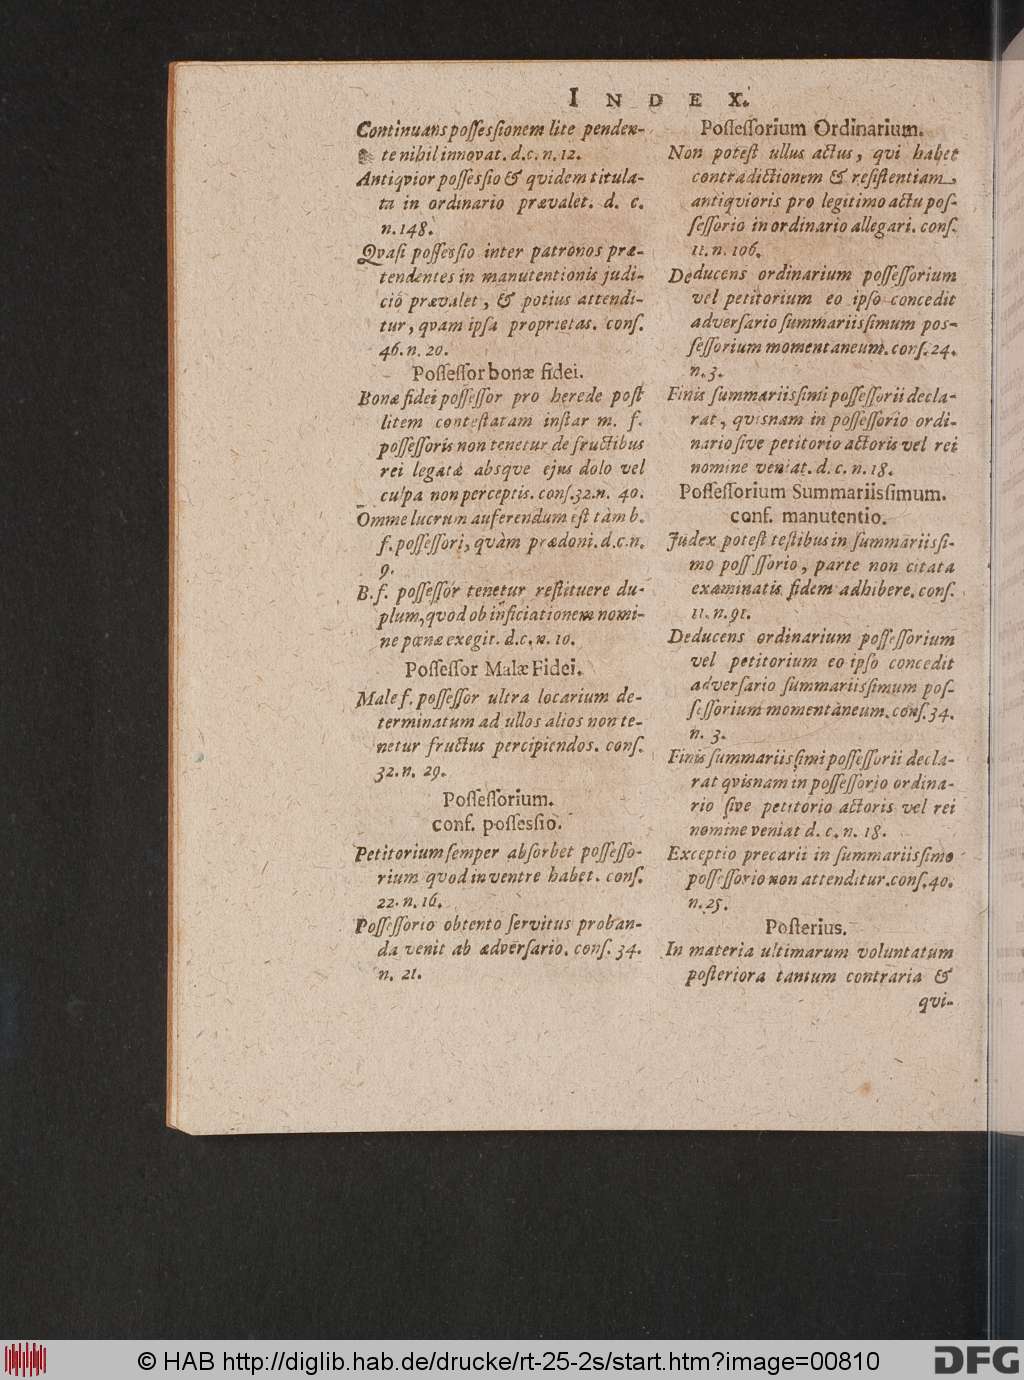 INDEX.
Continuans possessionem lite penden-
te nihil innovat. d.c. n. 12.
Antiqvior possessio & qvidem titula-
ta in ordinario prævalet. d. c.
n. 148.
Qvasi possessio inter patronos præ-
tendentes in manutentionis judi-
ciô prævalet, & potius attendi-
tur, qvam ipsa proprietas. cons.
46. n. 20.
Possessor bonæ fidei.
Bonæ fidei possessor pro herede post
litem contestatam instar m. f.
possessoris non tenetur de fructibus
rei legatæ absqve ejus dolo vel
culpa non perceptis. cons. 32. n. 40.
Omme lucrum auferendum est tàm b.
f. possessori, qvàm prædoni. d.c. n.
9.
B. f. possessor tenetur restituere du-
plum, qvod ob inficiationem nomi-
ne pœnæ exegit. d.c. n. 10.
Possessor Malæ Fidei.
Male f. possessor ultra locarium de-
terminatum ad ullos alios non te-
netur fructus percipiendos. cons.
32. n. 29.
Possessorium.
conf. possessio.
Petitorium semper absorbet possesso-
rium qvod in ventre habet. cons.
22. n. 16.
Possessorio obtento servitus proban-
da venit ab adversario. cons. 34.
n. 21.
Possessorium Ordinarium.
Non potest ullus actus, qvi habet
contradictionem & resistentiam
antiqvioris pro legitimo actu pos-
sessorio in ordinario allegari. cons.
11. n. 106.
Deducens ordinarium possessorium
vel petitorium eo ipso concedit
adversario summariissimum pos-
sessorium momentaneum. cons. 24.
n. 3.
Finis summariissimi possessorii decla-
rat, qvisnam in possessorio ordi-
nario sive petitorio actoris vel rei
nomine veniat. d. c. n. 18.
Possessorium Summariissimum.
conf. manutentio.
Judex potest testibus in summariissi-
mo possessorio, parte non citata
examinatis fidem adhibere. cons.
11. n. 91.
Deducens ordinarium possessorium
vel petitorium eo ipso concedit
adversario summariissimum pos-
sessorium momentàneum. cons. 34.
n. 3.
Finis summariissimi possessorii decla-
rat qvisnam in possessorio ordina-
rio sive petitorio actoris vel rei
nomine veniat d. c. n. 18.
Exceptio precarii in summariissimo
possessorio non attenditur. cons. 40.
n. 25.
Posterius.
In materia ultimarum voluntatum
posteriora tantum contraria &
qvi-
© HAB http://diglib.hab.de/drucke/rt-25-2s/start.htm?image=00810
DFG